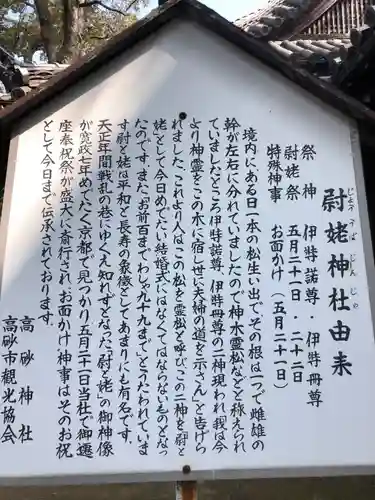 尉姥神社由来
じょううばじんじゃ
祭神 伊弉諾尊・伊弉冊尊
尉姥祭 五月二十一日・二十二日
特殊神事 お面かけ(五月二十一日)
境内にある日一本の松生い出で、その根は一つで雌雄の
幹が左右に分れていましたので神木霊松などと称えられ
ていましたところ伊弉諾尊、伊弉冊尊の二神現われ「我は今
より神霊をこの木に宿し世に夫婦の道を示さん」と告げら
れました。これより人はこの松を霊松と呼び、この二神を「尉と
姥」として今日めでたい結婚式にはなくてはならないものとなっ
たのです。また「お前百までわしゃ九十九まで」とうたわれていま
す尉と姥は平和と長寿の象徴としてあまりにも有名です。
天正年間戦乱の巷にゆくえ知れずとなった「尉と姥」の御神像
が寛政七年めでたく京都で見つかり、五月二十一日当社で御遷
座奉祝祭が盛大に斎行され、お面かけ神事はそのお祝
として今日まで伝承されております。
高砂神社
高砂市観光協会